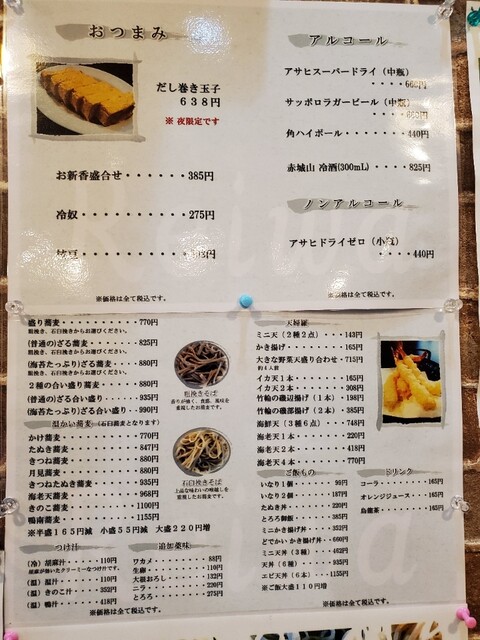 おつまみ
だし巻き玉子
638円
※ 夜限定です
お新香盛合せ・・・・・・385円
冷奴・・・・・・・・・・275円
※価格は全て税込です。
アルコール
アサヒスーパードライ（中瓶）
・・・・660円
サッポロラガービール（中瓶）
角ハイボール・・・・・440円
赤城山 冷酒(300mL)・・・・825円
ノンアルコール
アサヒドライゼロ（小瓶）
・・・・440円
※価格は全て税込です。
盛り蕎麦・・・・・・・・・770円
粗挽き、石臼挽きからお選びください。
(普通の)ざる蕎麦・・・・・825円
粗挽き、石臼挽きからお選びください。
(海苔たっぷり)ざる蕎麦・・880円
粗挽き、石臼挽きからお選びください。
2種の合い盛り蕎麦・・・・880円
(普通の)ざる合い盛り・・・935円
(海苔たっぷり)ざる合い盛り・・990円
粗挽きそば
香りが強く、食感、風味を
重視したお蕎麦です。
温かい蕎麦（石臼蕎麦となります）
かけ蕎麦・・・・・・・・・770円
たぬき蕎麦・・・・・・・・847円
きつね蕎麦・・・・・・・・880円
月見蕎麦・・・・・・・・・880円
きつねたぬき蕎麦・・・・・935円
海老天蕎麦・・・・・・・・968円
きのこ蕎麦・・・・・・・・1100円
鴨南蕎麦・・・・・・・・・1155円
石臼挽きそば
上品な味わいの喉越しを
重視したお蕎麦です。
※半盛165円減 小盛55円減 大盛220円増
つけ汁
（冷）胡麻汁・・・・・110円
胡麻が効いたクリーミーなつけ汁です。
（温）温汁・・・・・・110円
（温）きのこ汁・・・・352円
（温）鴨汁・・・・・・418円
追加薬味
ワカメ・・・・・・・88円
生卵・・・・・・・・110円
大根おろし・・・・・132円
ニラ・・・・・・・・220円
とろろ・・・・・・・275円
※価格は全て税込です。
天婦羅
ミニ天（2種2点）・・・143円
かき揚げ・・・・・・・・165円
大きな野菜天盛り合わせ・715円
約4人前
イカ天1本・・・・・・・165円
イカ天2本・・・・・・・308円
竹輪の磯辺揚げ（1本）・198円
竹輪の磯部揚げ（2本）・385円
海鮮天（3種6点）・・・748円
海老天1本・・・・・・・220円
海老天2本・・・・・・・418円
海老天4本・・・・・・・770円
ご飯もの
いなり1個・・・・・・・99円
いなり2個・・・・・・・187円
たぬき丼・・・・・・・・220円
とろろ御飯・・・・・・・385円
ミニかき揚げ丼・・・・・352円
どでかい かき揚げ丼・・・660円
ミニ天丼（3種）・・・・462円
天丼（6種）・・・・・・935円
エビ天丼（6本）・・・・1155円
※ご飯大盛110円増
ドリンク
コーラ・・・・・・165円
オレンジジュース・・165円
烏龍茶・・・・・・165円
※価格は全て税込です。